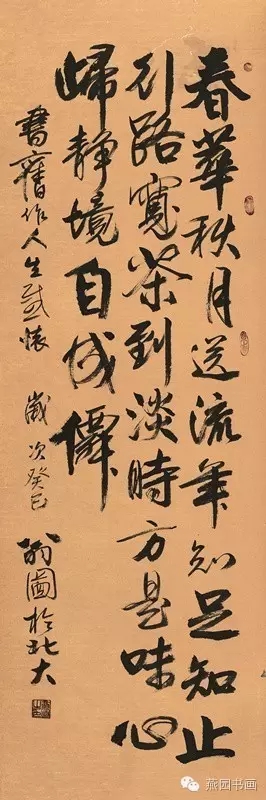 春華秋月送流年知足知止
行路寬茶到淡時方是味心
歸靜境自成僊
書舊作人生感懷 歲次癸巳 翁圖於北大
燕园书画